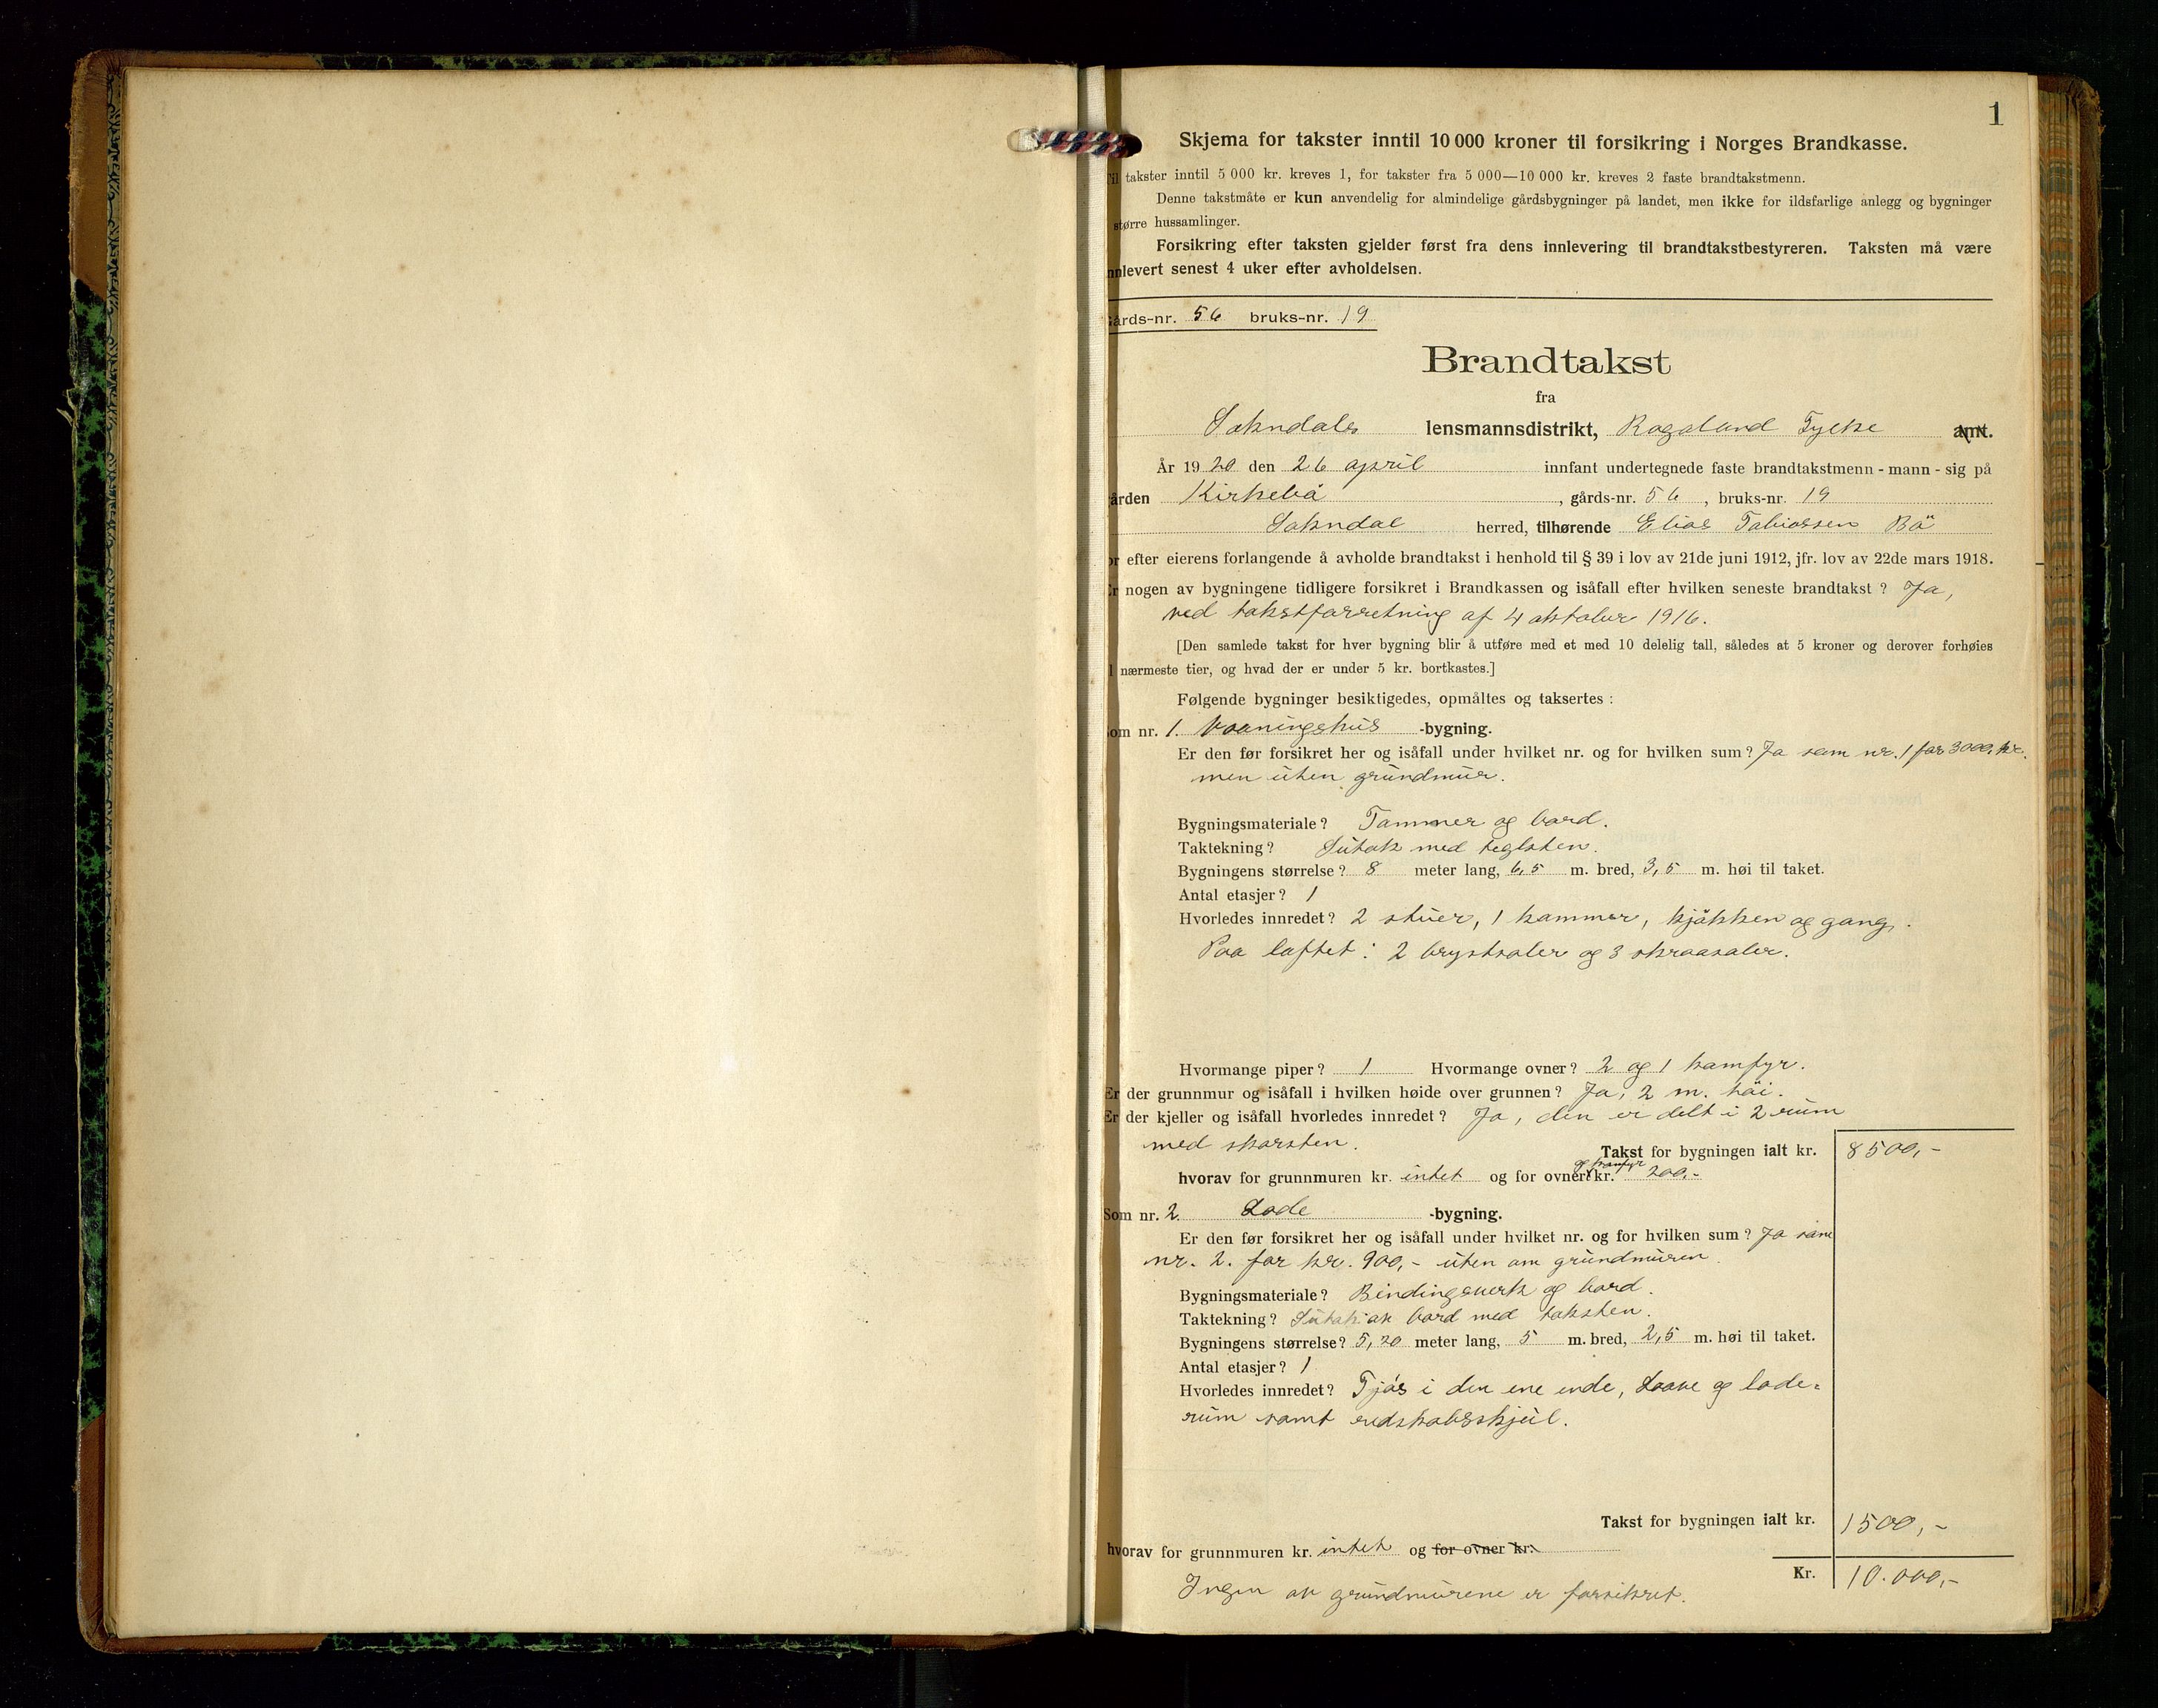 1
Skjema for takster inntil 10 000 kroner til forsikring i Norges Brandkasse.
Til takster inntil 5 000 kr. kreves 1, for takster fra 5 000—10 000 kr. kreves 2 faste brandtakstmenn.
Denne takstmåte er kun anvendelig for almindelige gårdsbygninger på landet, men ikke for ildsfarlige anlegg og bygninger
større hussamlinger.
Forsikring efter taksten gjelder først fra dens innlevering til brandtakstbestyreren. Taksten må være
nnlevert senest 4 uker efter avholdelsen.
Gårds-nr. 56 bruks-nr. 19
Brandtakst
fra
Sokndals lensmannsdistrikt, Rogaland Fylke amt.
År 1920 den 26 april innfant undertegnede faste brandtakstmenn - mann - sig på
gården Kirkebö, gårds-nr. 56, bruks-nr. 19
Sokndal herred, tilhørende Elias Tobiassen Bö
or efter eierens forlangende å avholde brandtakst i henhold til § 39 i lov av 21de juni 1912, jfr. lov av 22de mars 1918.
Er nogen av bygningene tidligere forsikret i Brandkassen og isåfall efter hvilken seneste brandtakst? Ja,
ved takstforretning af 4 oktober 1916.
[Den samlede takst for hver bygning blir å utføre med et med 10 delelig tall, således at 5 kroner og derover forhøies
l nærmeste tier, og hvad der er under 5 kr. bortkastes.]
Følgende bygninger besiktigedes, opmåltes og taksertes :
Som nr. 1. Vaaningshus -bygning.
Er den før forsikret her og isåfall under hvilket nr. og for hvilken sum? Ja som nr. 1 for 3000, kr.
men uten grundmur.
Bygningsmateriale? Tømmer og bord.
Taktekning? Sutak med teglsten.
Bygningens størrelse? 8 meter lang, 6,5 m. bred, 3,5 m. høi til taket.
Antal etasjer? 1
Hvorledes innredet? 2 stuer, 1 kammer, kjökken og gang.
Paa loftet: 2 brystsaler og 3 skraasaler.
Hvormange piper? 1 Hvormange ovner? 2 og 1 komfyr.
Er der grunnmur og isåfall i hvilken høide over grunnen? Ja, 2 m. höi.
Er der kjeller og isåfall hvorledes innredet? Ja, den er delt i 2 rum
med skorsten.
Takst for bygningen ialt kr. 8500,-
hvorav for grunnmuren kr. intet og for ovner og komfyr kr. 200,-
Som nr. 2. Lade -bygning.
Er den før forsikret her og isåfall under hvilket nr. og for hvilken sum? Ja som
nr. 2. for kr. 900,- uten om grundmuren.
Bygningsmateriale? Bindingsverk og bord.
Taktekning? Sutak av bord med taksten.
Bygningens størrelse? 5,20 meter lang, 5 m. bred, 2,5 m. høi til taket.
Antal etasjer? 1
Hvorledes innredet? Fjös i den ene ende, Laave og lade-
rum samt redskabsskjul.
Takst for bygningen ialt kr. 1500,-
hvorav for grunnmuren kr. intet og for ovner kr.
Kr. 10.000,-
Ingen av grundmurene er forsikret.